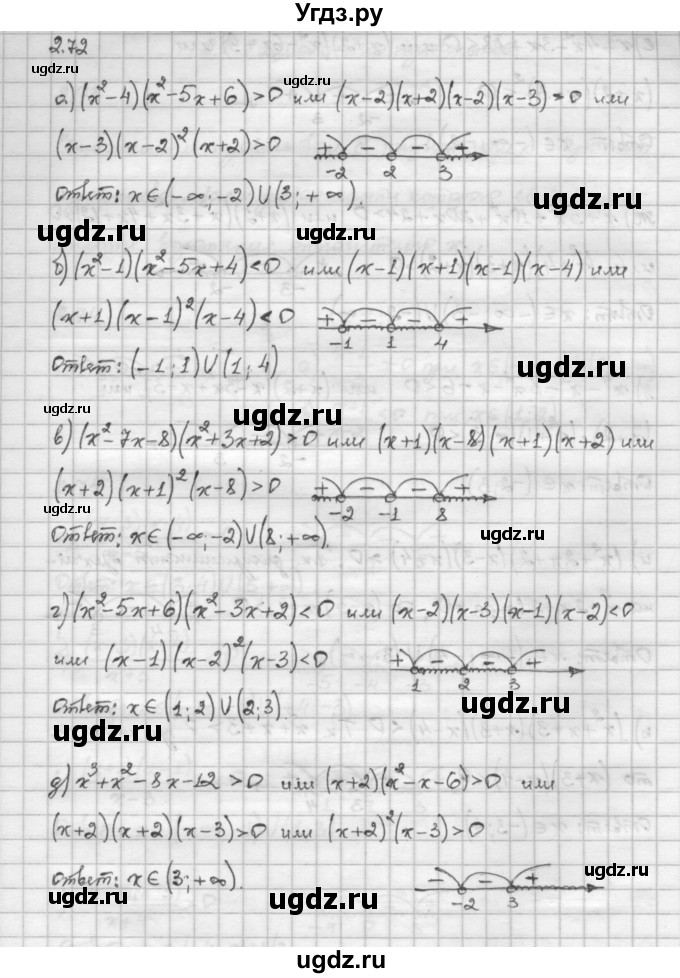 Угдз.ру
2.72
ugdz.ru ugdz.ru
а) (x²-4)(x²-5x+6)>0 или (x-2)(x+2)(x-2)(x-3)=0 или
ugdz.ru
(x-3)(x-2)²(x+2)>0 + - - +
-2 2 3
Ответ: x∈(-∞;-2)∪(3;+∞).
ugdz.ru ugdz.ru
б) (x²-1)(x²-5x+4)<0 или (x-1)(x+1)(x-1)(x-4) или
ugdz.ru
(x+1)(x-1)²(x-4)<0 + - - +
-1 1 4
Ответ: (-1;1)∪(1;4)
ugdz.ru ugdz.ru
в) (x²-7x-8)(x²+3x+2)>0 или (x+1)(x-8)(x+1)(x+2) или
(x+2)(x+1)²(x-8)>0 + - - +
-2 -1 8
ugdz.ru
Ответ: x∈(-∞;-2)∪(8;+∞).
ugdz.ru
г) (x²-5x+6)(x²-3x+2)<0 или (x-2)(x-3)(x-1)(x-2)<0
или (x-1)(x-2)²(x-3)<0 + - - +
1 2 3
Ответ: x∈(1;2)∪(2;3)
ugdz.ru ugdz.ru
д) x³+x²-8x-12>0 или (x+2)(x²-x-6)>0 или
ugdz.ru
(x+2)(x+2)(x-3)>0 или (x+2)²(x-3)>0
Ответ: x∈(3;+∞). - - +
ugdz.ru
-2 3
ugdz.ru ugdz.ru
ugdz.ru
ugdz.ru